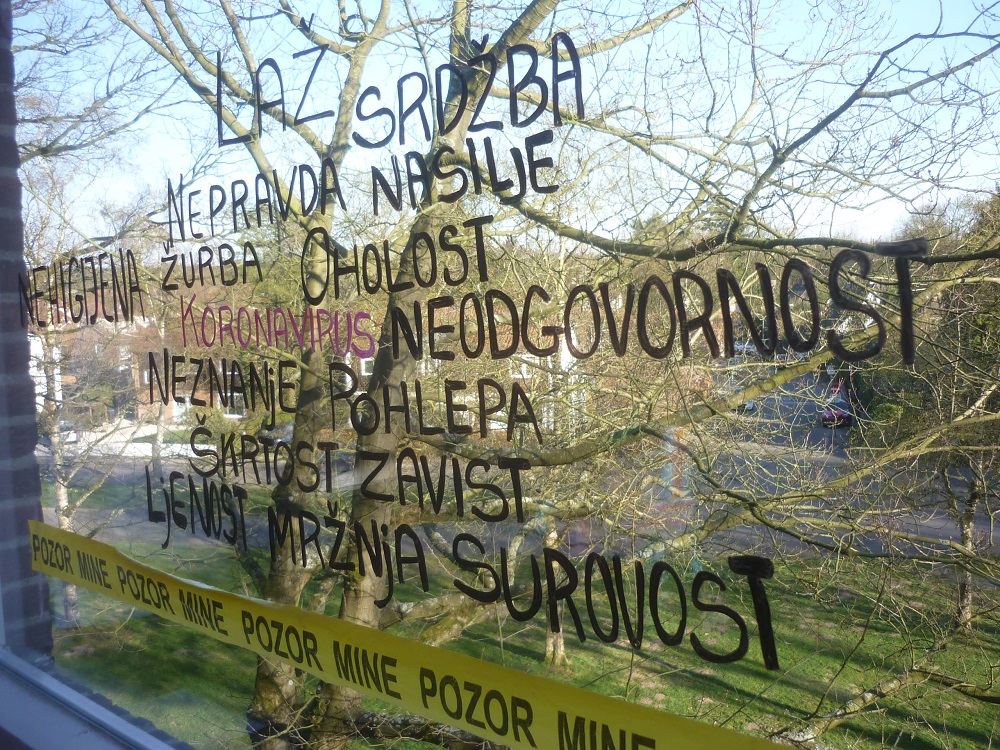 LAŽ SRDŽBA
NEPRAVDA NASILjE
NEHIGIJENA ŽURBA OHOLOST
KORONAVIRUS NEODGOVORNOST
NEZNANjE POHLEPA
ŠKRTOST ZAVIST
LjENOST MRŽNjA SUROVOST
POZOR MINE POZOR MINE POZOR MINE POZOR MINE